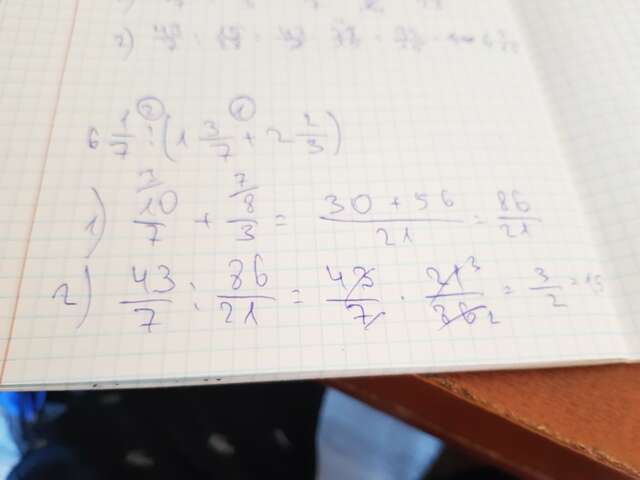 ② ①
6 1/7 : (1 3/7 + 2 2/3)
1) 10/7 ³ + 8/3 ⁷ = (30 + 56)/21 = 86/21
2) 43/7 : 86/21 = 43/7 · 21³/36₂ = 3/2 = 1,5